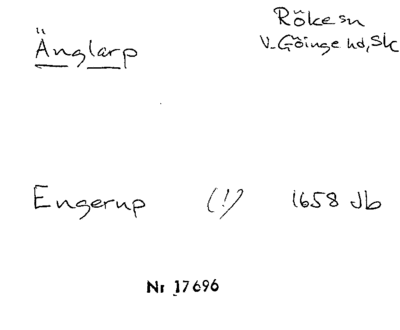 Änglarp
Röke sn
V. Göinge hd, Sk
Engerup (!) 1658 Jb
Nr 17696